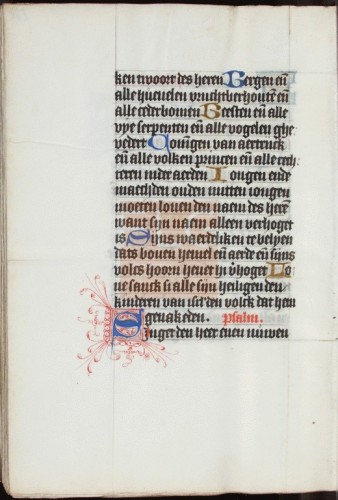 ken twoort des heren Bergen eñ
alle huevelen vruchtverhoutē eñ
alle cederbomen Beesten eñ alle
vye serpenten eñ alle vogelen ghe
vedert Coningen van aertruck
eñ alle volken princen eñ alle rech
teren inder aerden Jongen ende
maechden ouden mitten iongen
moeten loven den naem des herē
want sijn naem alleen verhoget
is Sijns waerdelken te belyen
dats boven hemel eñ aerde eñ sijns
volcs hoorn heuet hi v̄hoget Lo
ne sanck si alle sijn heiligen den
kinderen van isr̄l den volck dat hem
genaken. psalm.
Singet den heer enen nuwen